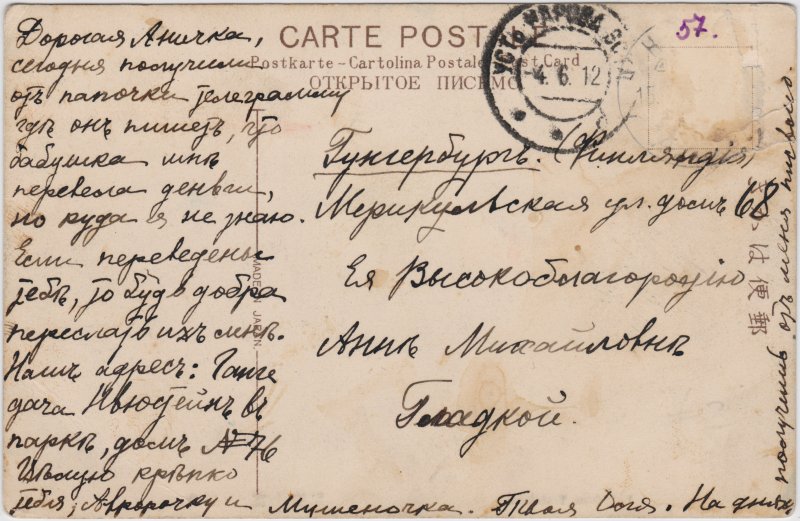 CARTE POSTALE
Postkarte – Cartolina Postale – Post Card
ОТКРЫТОЕ ПИСЬМО
57.
УСТЬ НАРОВА
4. 6. 12
Дорогая Аничка,
сегодня получили
отъ папочки телеграмму
гдѣ онъ пишетъ, что
бабушка мнѣ
перевела деньги,
но куда я не знаю.
Если переведены
тебѣ, то будь добра
переслать ихъ мнѣ.
Нашъ адресъ: Ганге
дача въ
паркѣ, домъ № 76
Цѣлую крѣпко
тебя, Авророчку и Мушеночка. Твоя Китя. На дняхъ
получишь отъ меня письмо.
Гунгербургъ. (Финляндія)
Мерикульская ул. домъ 68
Ея Высокоблагородію
Аннѣ Михайловнѣ
Гладкой.
MADE IN JAPAN.
は便郵